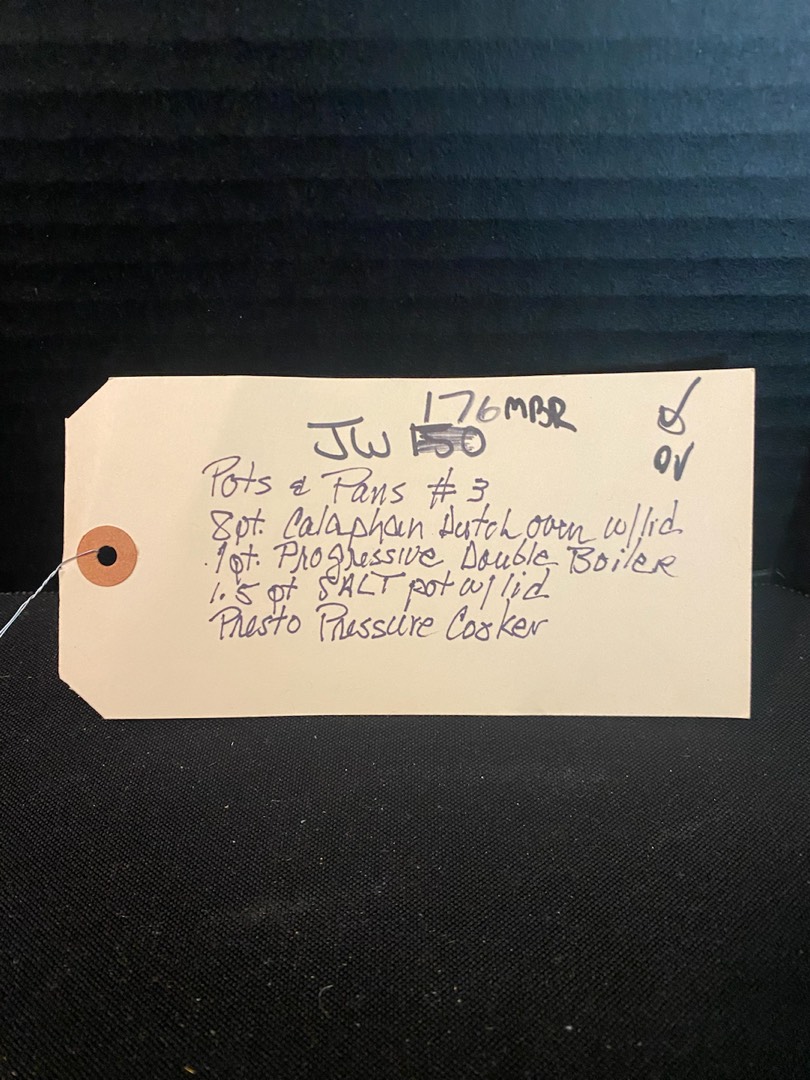 176 MBR
JW 150
OV
Pots & Pans # 3
8 pt. Calaphan Dutch oven w/lid
.1 qt. Progressive Double Boiler
1.5 qt SALT pot w/ lid
Presto Pressure Cooker